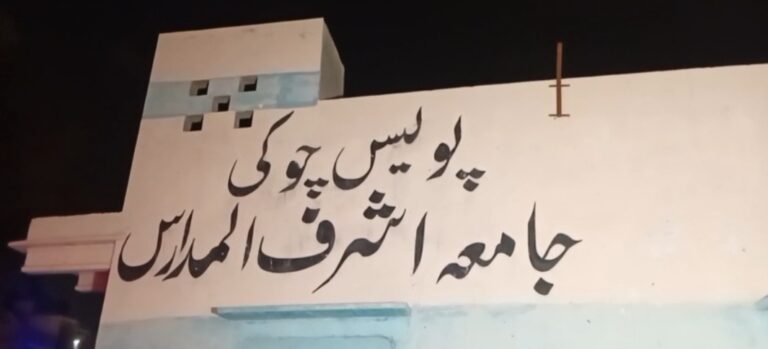 پولیس چوکی
جامعہ اشرف المدارس